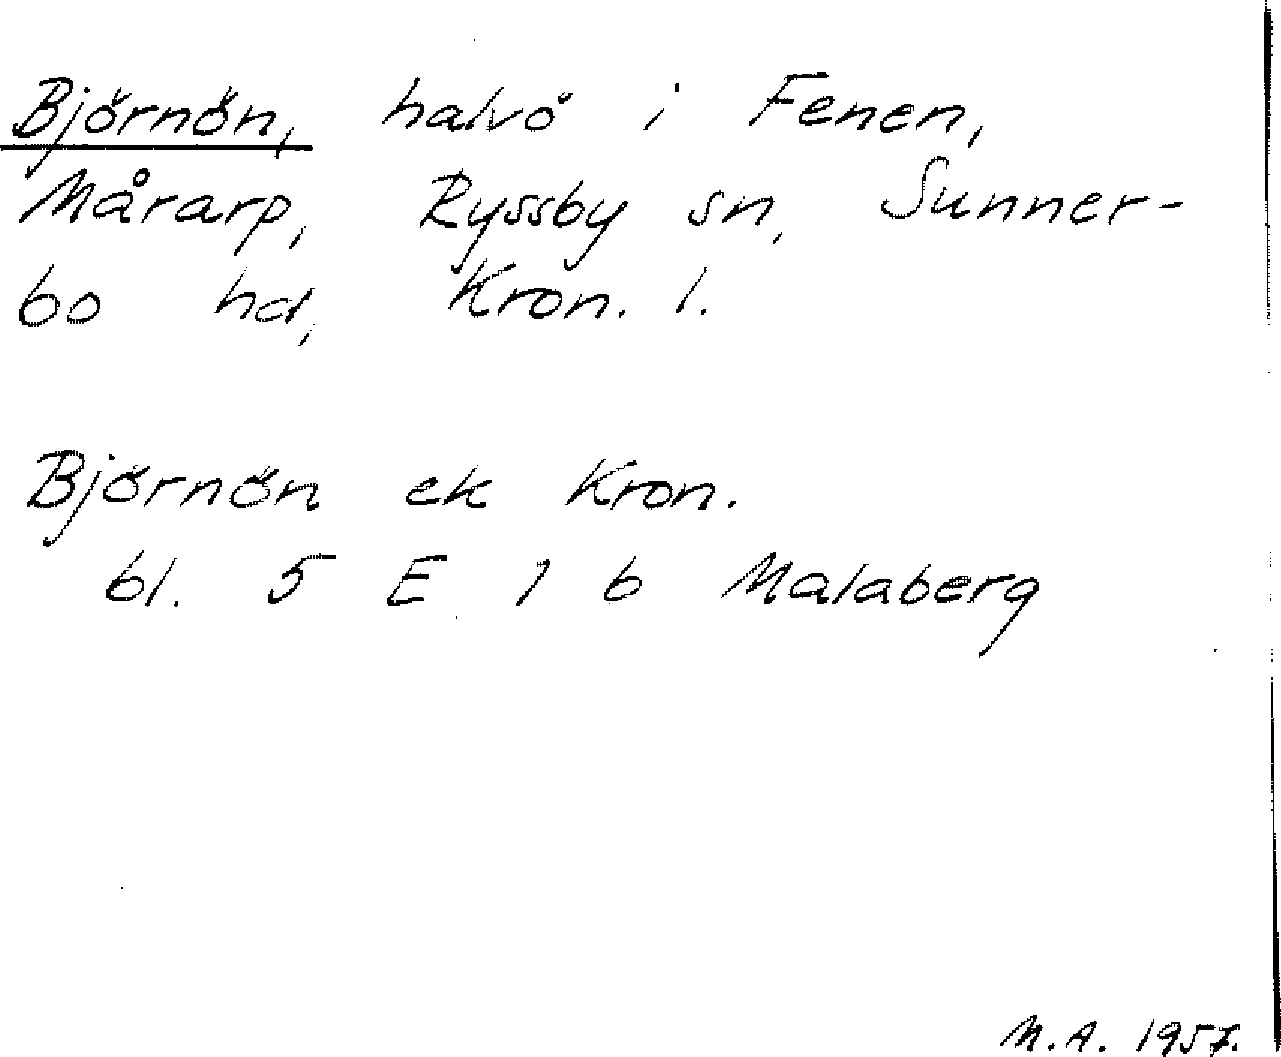 Björnön, halvö i Fenen,
Mårarp, Ryssby sn, Sunner-
bo hd, Kron. l.
Björnön ek Kron.
bl. 5 E 1 b Malaberg
M.A. 1957.